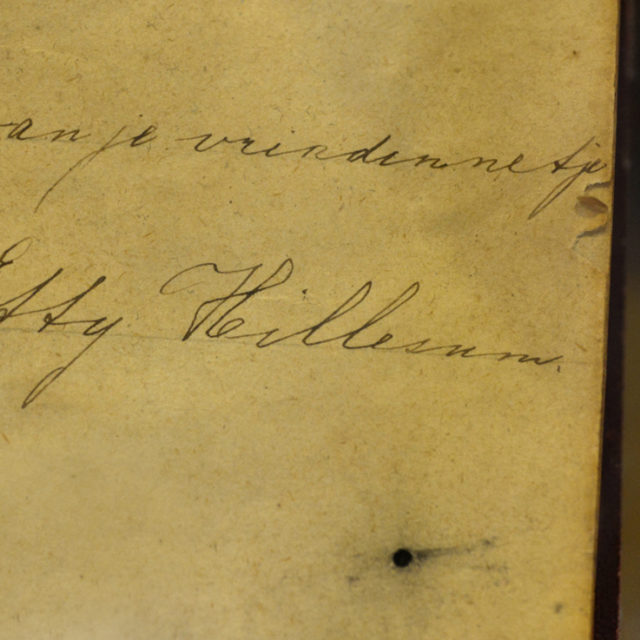 anje vriendinnetje
Etty Hillesum.